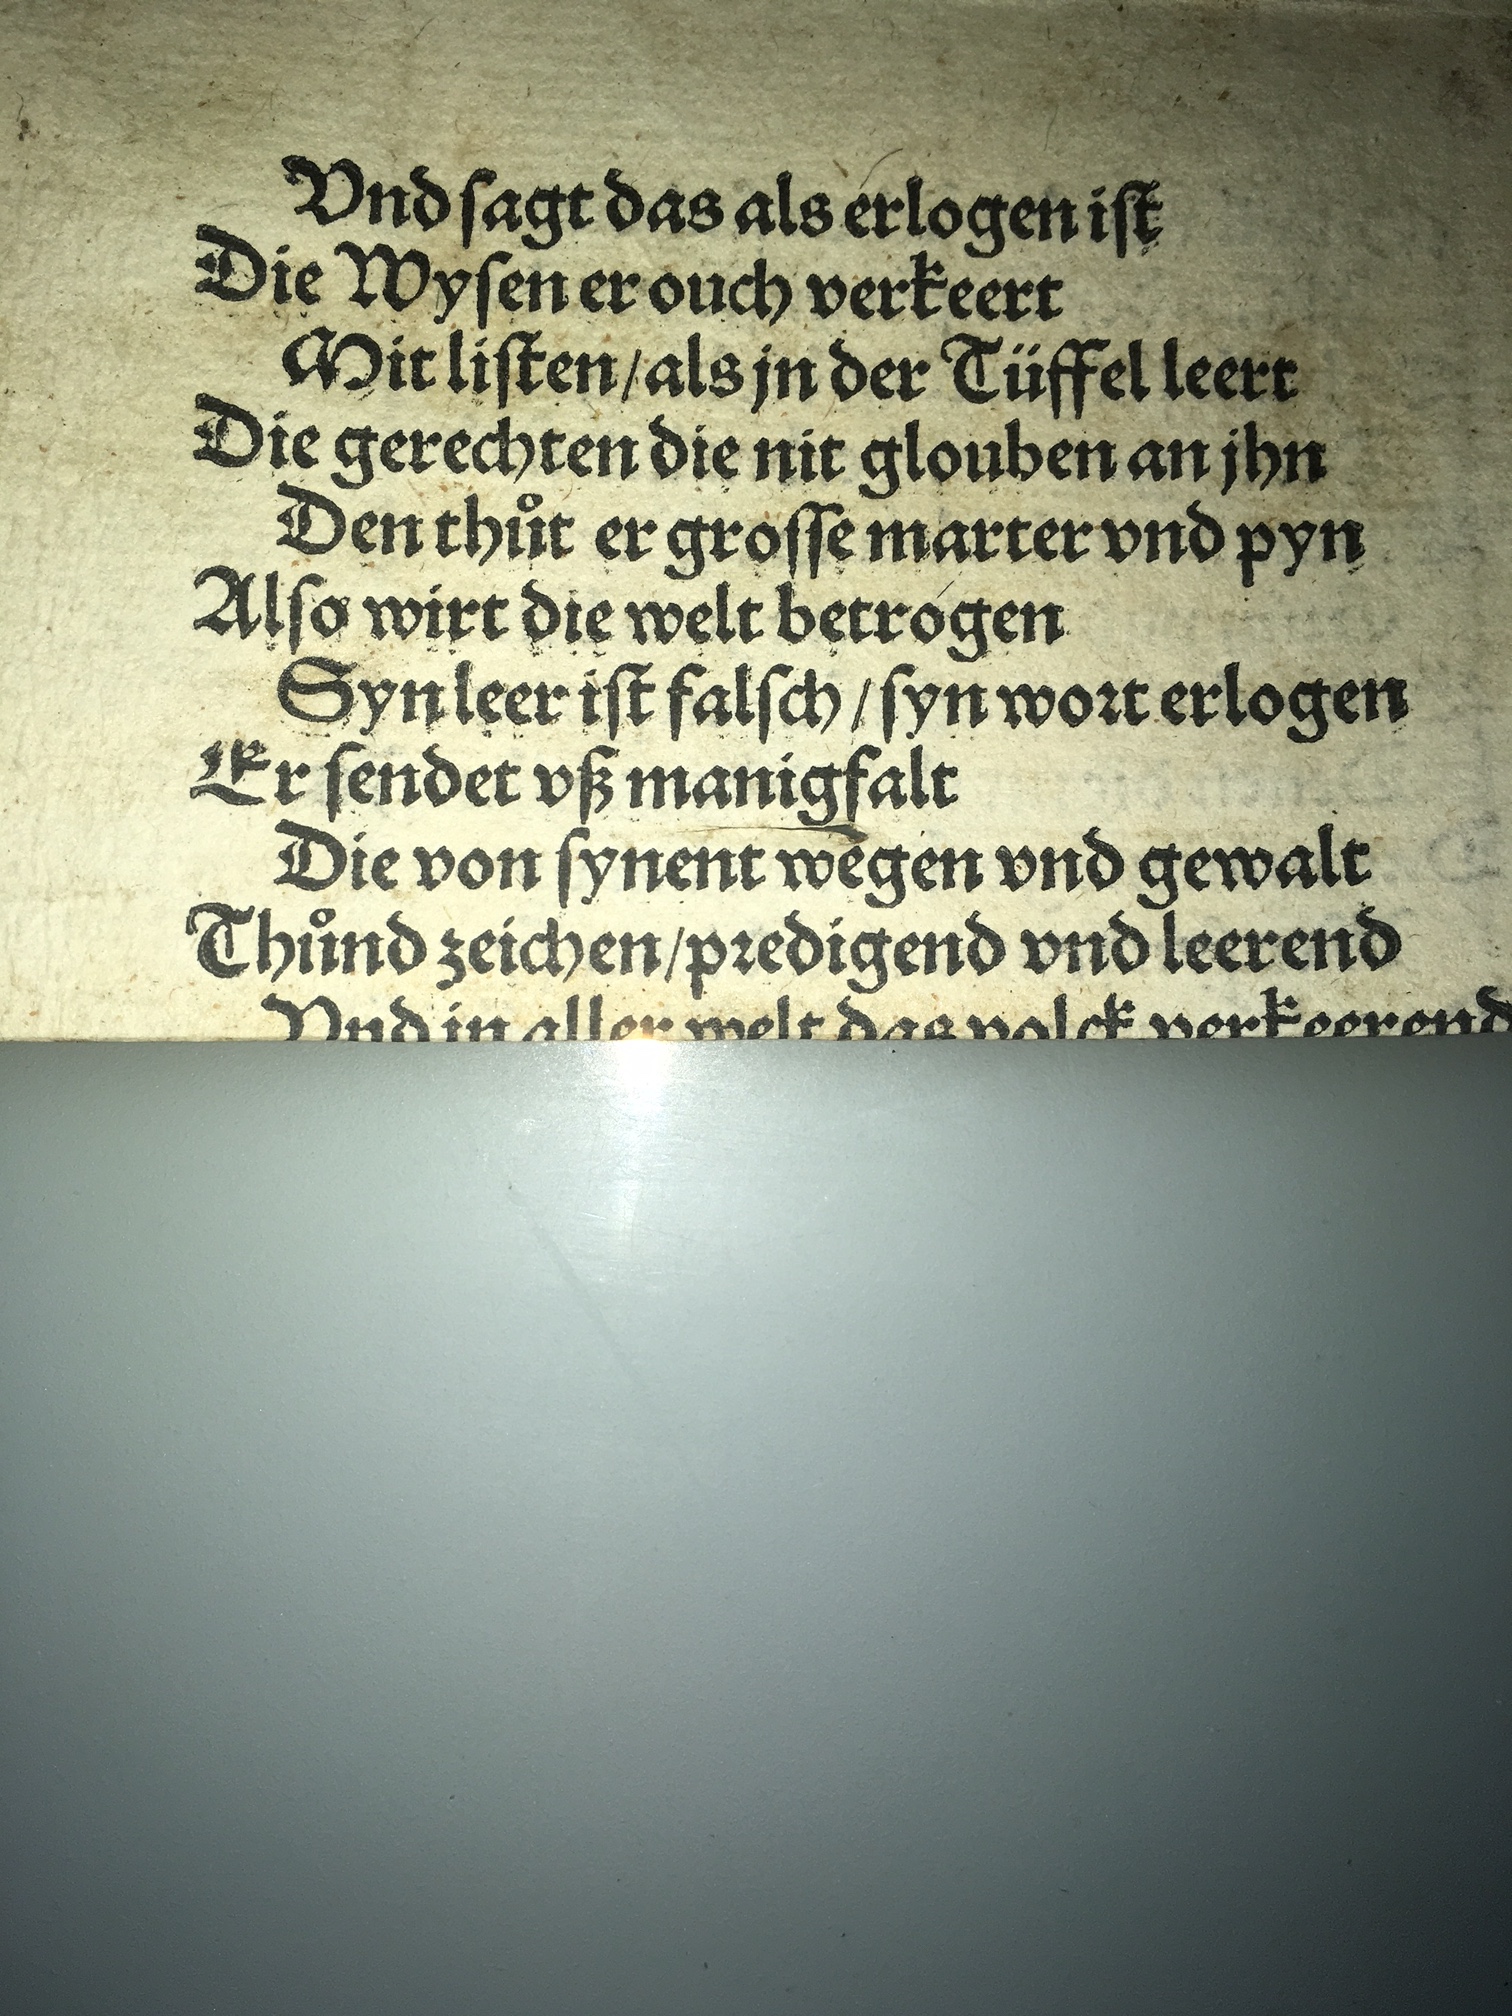 Vnd ſagt das als erlogen iſt
Die Wyſen er ouch verkeert
Mit liſten / als jn der Tüffel leert
Die gerechten die nit glouben an jhn
Den thůt er groſſe marter vnd pyn
Alſo wirt die welt betrogen
Syn leer iſt falſch / ſyn wort erlogen
Er ſendet vß manigfalt
Die von ſynent wegen vnd gewalt
Thůnd zeichen / predigend vnd leerend
Vnd in aller welt das volck verkeerend